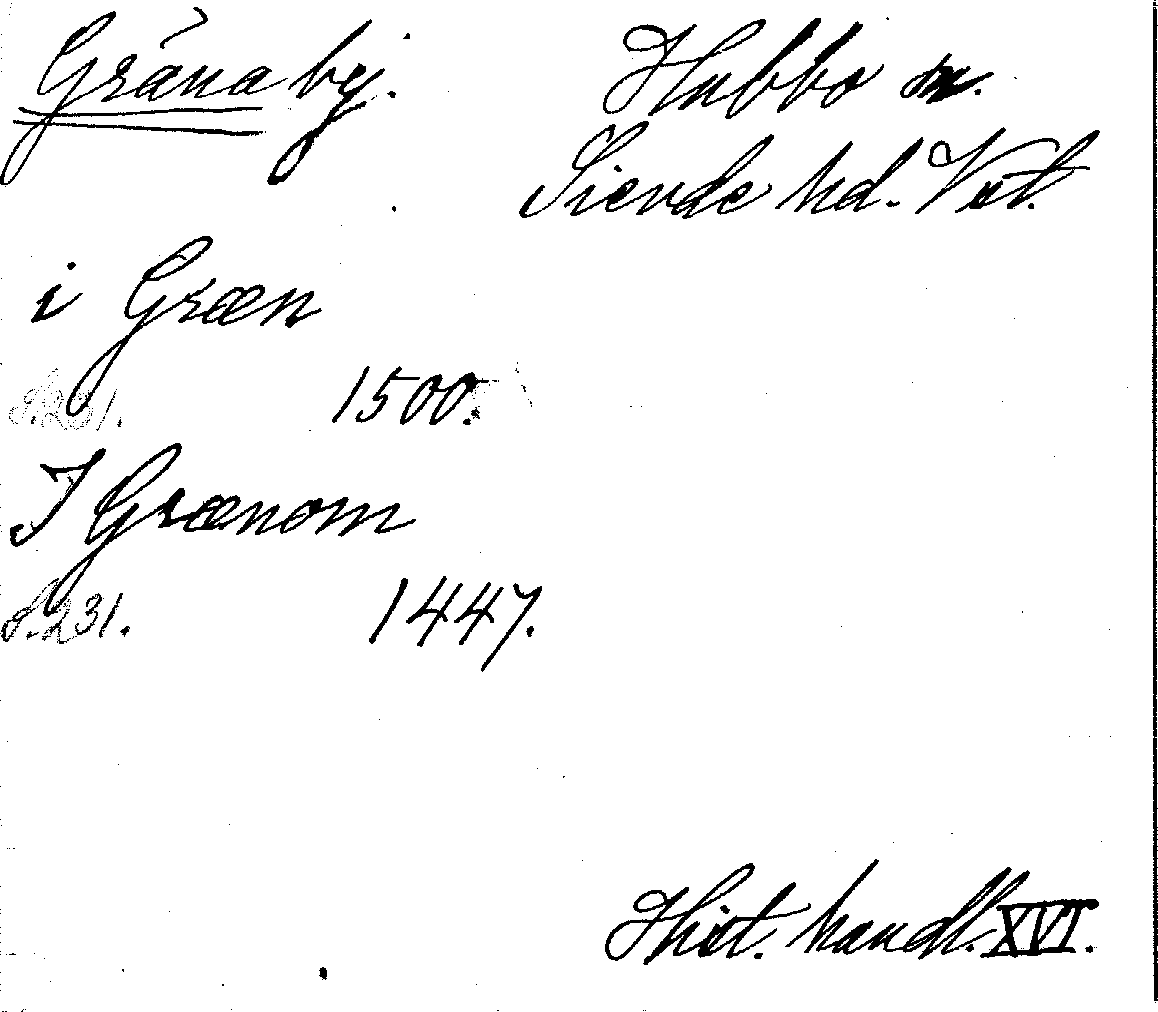 Gräna by.
Hubbo sn.
Siende hd. Vstl.
i Græn
S. 231. 1500.
I Grænom
S. 231. 1447.
Hist. handl. XVI.